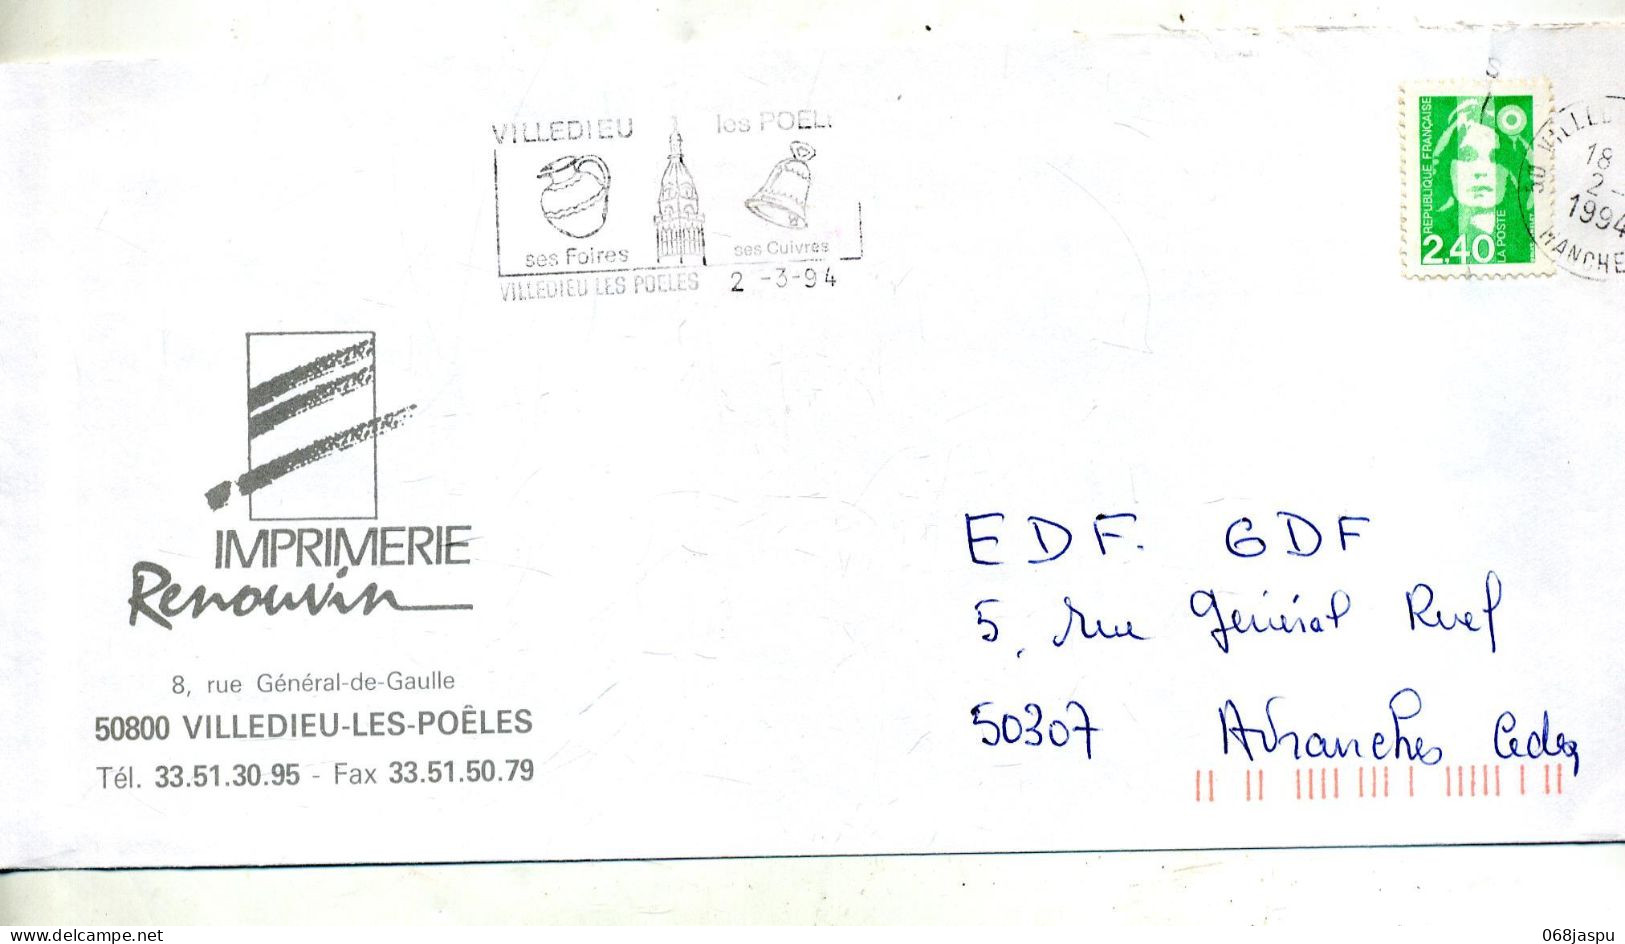 VILLEDIEU les POEL
ses Foires ses Cuivres
VILLEDIEU LES POELES 2 -3-94
REPUBLIQUE FRANÇAISE
2.40
LA POSTE
50 VILLED
18
2 -
1994
MANCHE
IMPRIMERIE
Renouvin
8, rue Général-de-Gaulle
50800 VILLEDIEU-LES-POÊLES
Tél. 33.51.30.95 - Fax 33.51.50.79
EDF. GDF
5, rue Général Ruel
50307 Avranches Cedex
delcampe.net
068jaspu